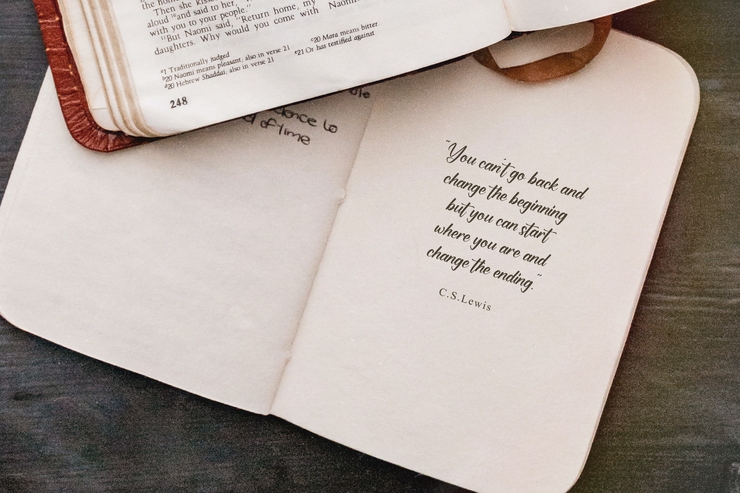 the home
Then she kiss
aloud ¹⁰and said to her,
with you to your people."
¹¹But Naomi said, "Return home, my
daughters. Why would you come with
Naomi
ᵃ1 Traditionally judged
ᵇ20 Naomi means pleasant; also in verse 21
ᵈ20 Hebrew Shaddai; also in verse 21
ᶜ20 Mara means bitter.
ᵉ21 Or has testified against
248
dance to
of time
"You can't go back and
change the beginning
but you can start
where you are and
change the ending."
C.S.Lewis